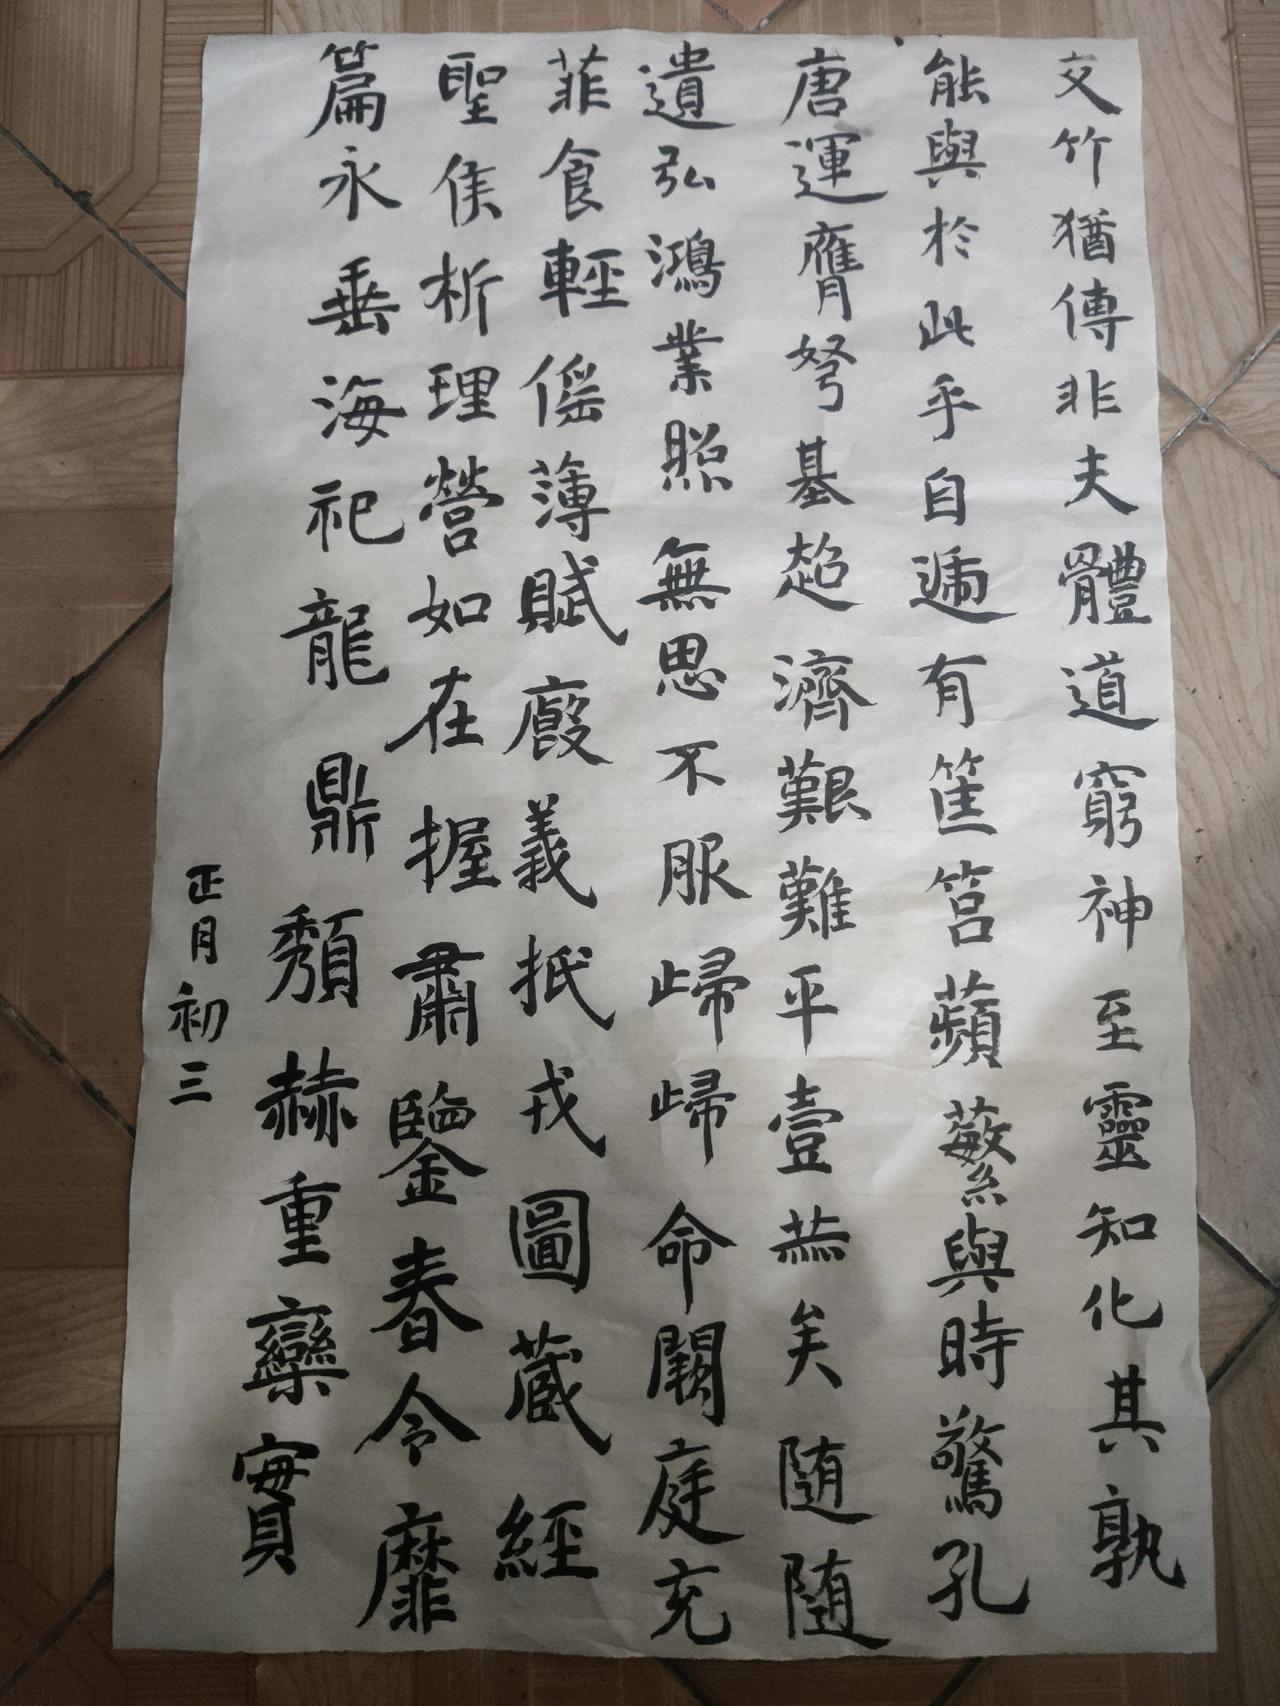 文竹猶傳非夫體道窮神至靈知化其孰
能與於此乎自遞有筐筥蘋蘩與時驚孔
唐運膺弩基超濟艱難平壹㷠矣随随
遺弘鴻業照無思不服歸歸命闕庭充
菲食輕傜薄賦廢義抵戎圖蔵經
聖隻析理營如在握肅鑒春令靡
篇永垂海祀龍鼎頽赫重欒實
正月初三